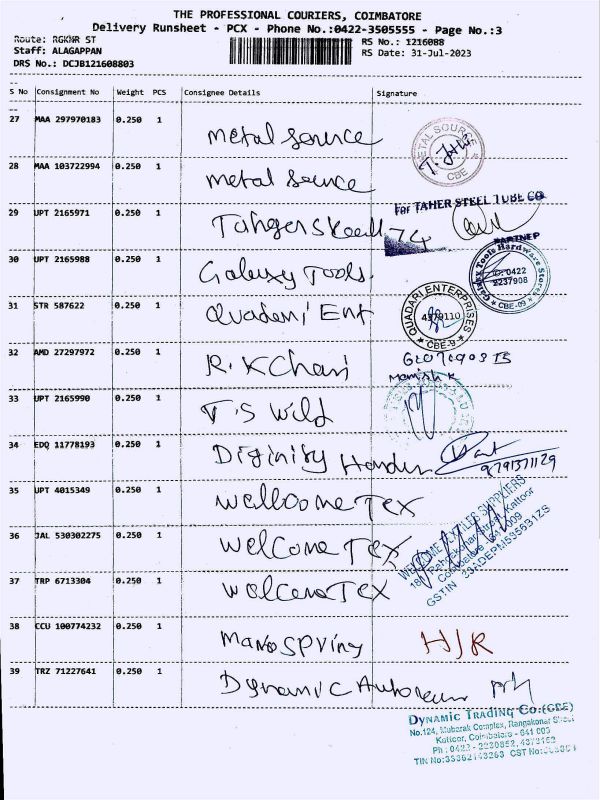 THE PROFESSIONAL COURIERS, COIMBATORE
Delivery Runsheet - PCX - Phone No.:0422-3505555 - Page No.:3
Route: RGKNR ST
RS No.: 1216088
Staff: ALAGAPPAN
RS Date: 31-Jul-2023
DRS No.: DCJB121608803
S No Consignment No Weight PCS Consignee Details Signature
27 MAA 297970183 0.250 1 metal source
METAL SOURCE
CBE
28 MAA 103722994 0.250 1 metal source
For TAHER STEEL TUBE CO
29 UPT 2165971 0.250 1
PARTNER
30 UPT 2165988 0.250 1 Galaxy Tools.
Tools Hardware Stores
0422
2237908
CBE-09
31 STR 587622 0.250 1 Quaderi Ent
QUADARI ENTERPRISES
4379110
CBE-9
32 AMD 27297972 0.250 1 R.K Chari
Manish K
33 UPT 2165990 0.250 1 T.S Wild
34 EDQ 11778193 0.250 1
9791371129
35 UPT 4015349 0.250 1 wellcome Tex
36 JAL 530302275 0.250 1 welcome Tex
WELCOME TEXTILES SUPPLIERS
Street, Kattoor
Coimbatore
GSTIN
37 TRP 6713304 0.250 1 welcome Tex
38 CCU 100774232 0.250 1 Mano Spring
39 TRZ 71227641 0.250 1 Dynamic
DYNAMIC TRADING CO.(CBE)
No.124, Mubarak Complex, Rangakonar Street
Kattoor, Coimbatore - 641 009
Ph : 0422 - 2230852, 4373152
TIN No:33362143263 CST No: